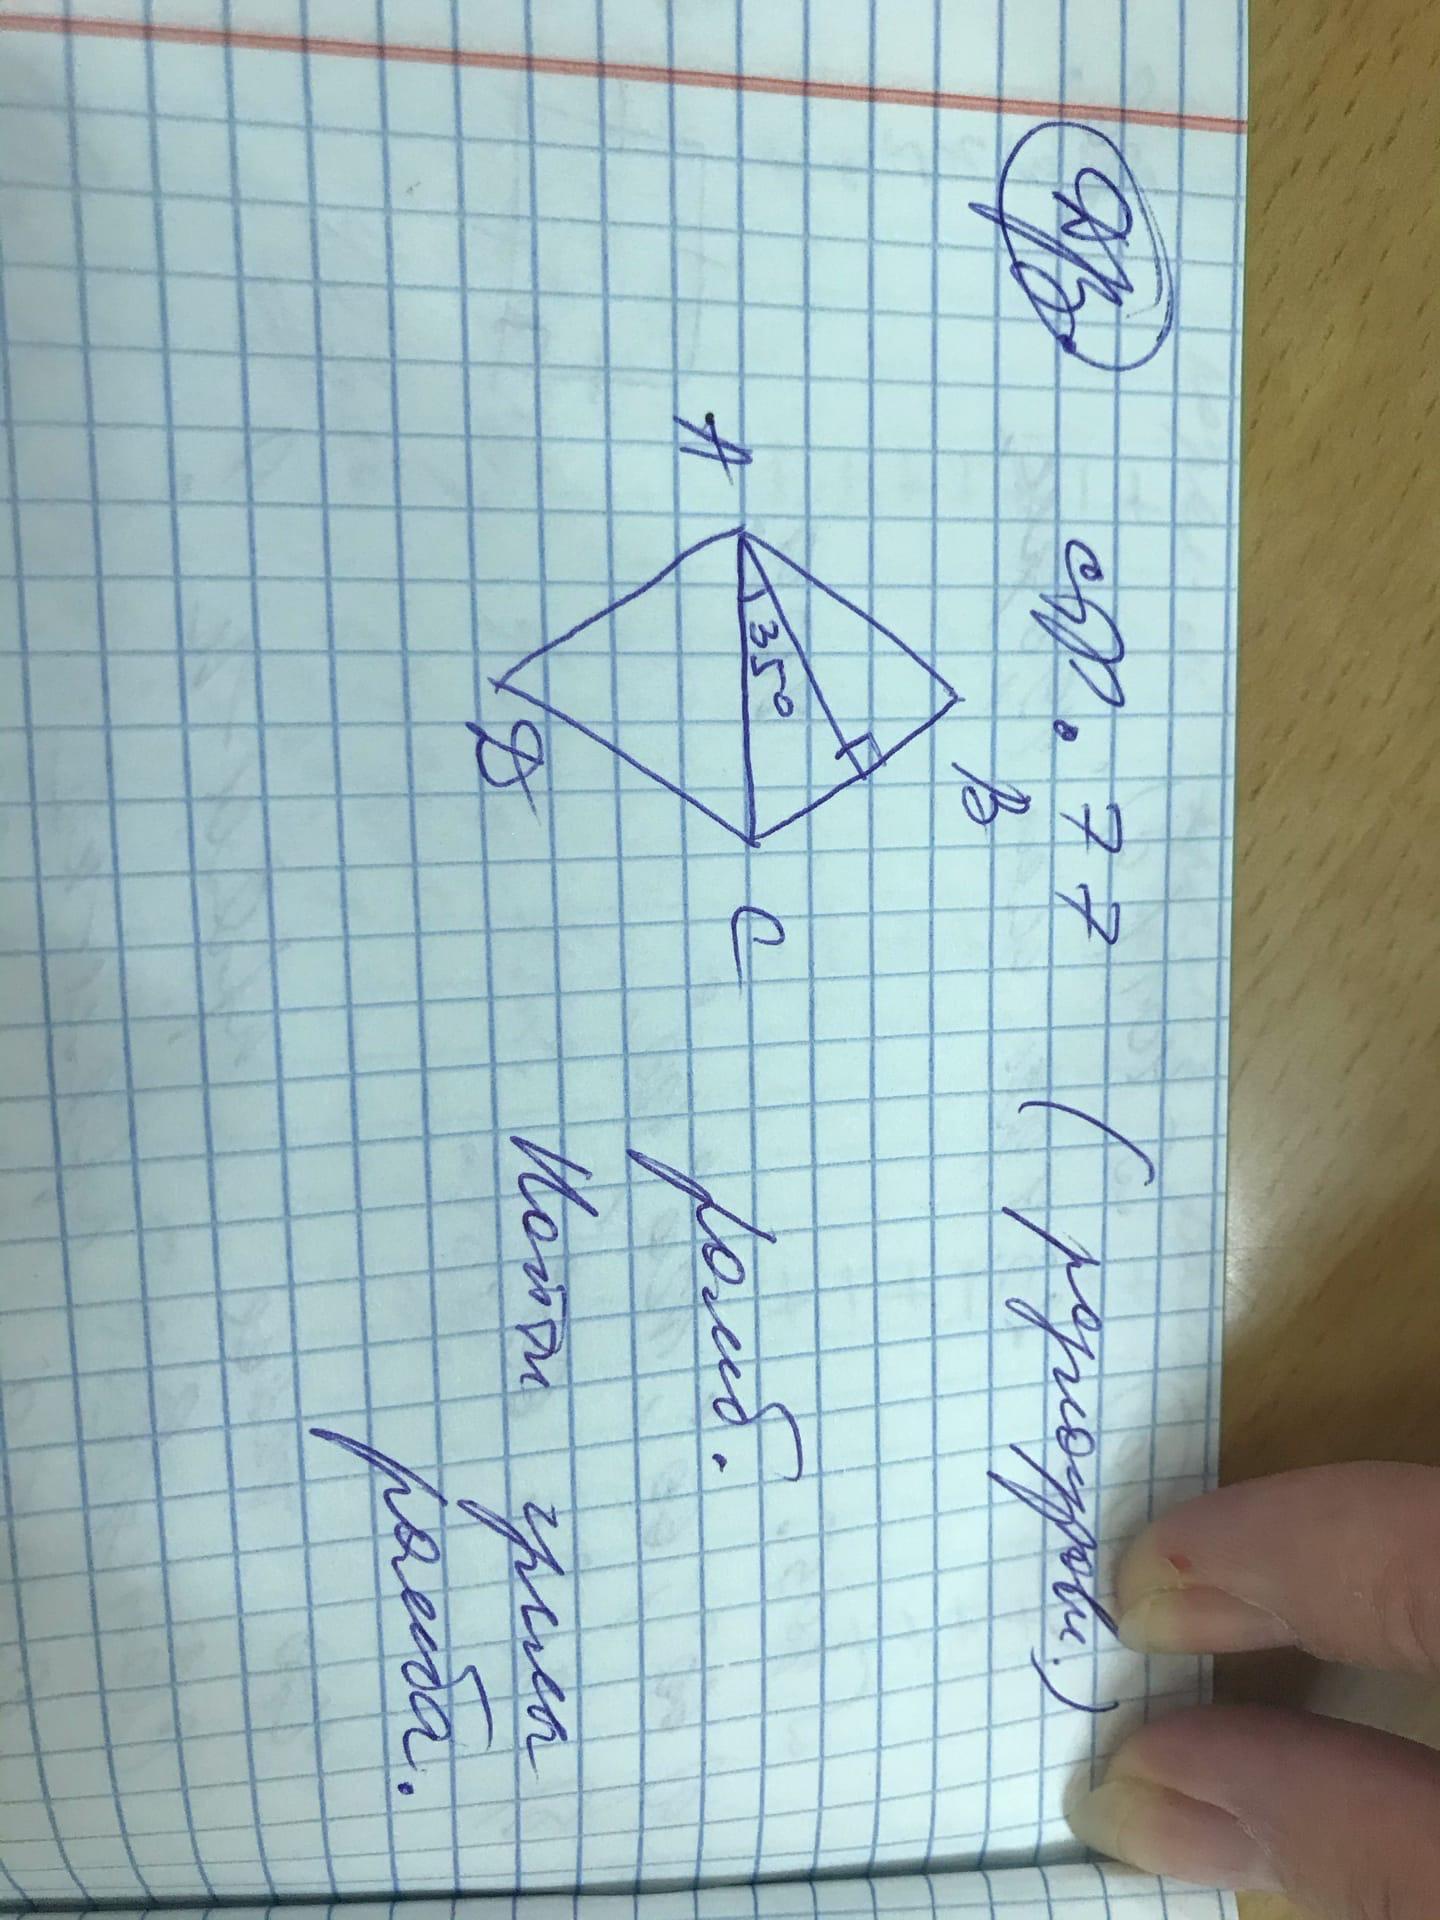 Д/з. стр. 77 (
B
A 35° C
D
Ромб.
Найти углы
ромба.